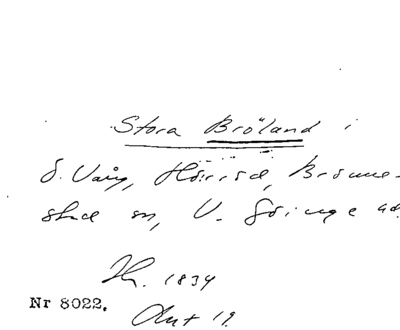 Stora Bröland i
S. Vång, Hörröd, Brönne-
stad sn, V. Göinge hd.
Hr. 1834
Nr 8022.
Akt 19.